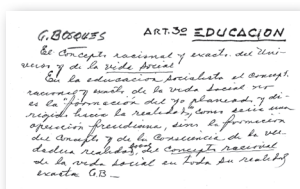 G. BOSQUES ART. 3º EDUCACION
El Concepto racional y exacto del Uni-
verso y de la vida social
En la educación socialista el concept.
racional y exacto de la vida social no
es la "formación del yo planeado y di-
rigido hacia la realidad, como sería una
operación freudiana, sino la formación
del concepto y de la Consciencia de la ver-
dadera realidad social, del concepto racional
de la vida social en toda su realidad
exacta G.B.—